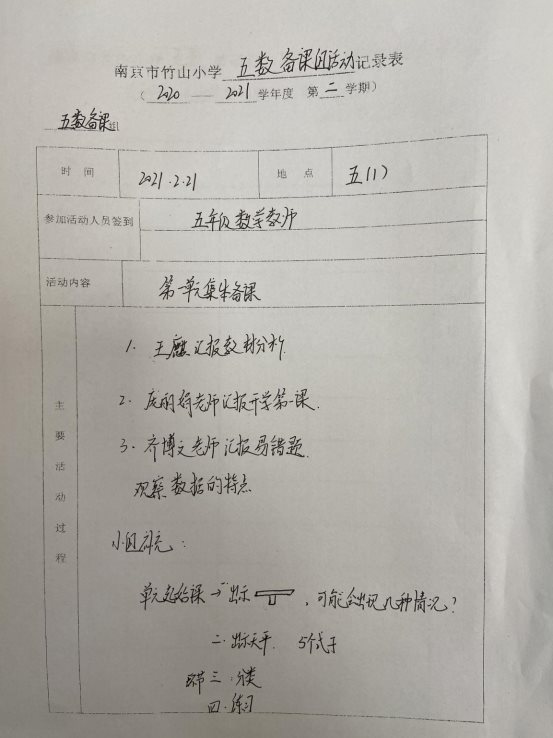 南京市竹山小学 五数备课组活动记录表
( 2020 —— 2021 学年度 第 二 学期)
五数备课组
时 间 2021.2.21 地 点 五(1)
参加活动人员签到 五年级数学教师
活动内容 第一单元集体备课
主要活动过程
1. 王麒汇报教材分析.
2. 老师汇报开学第一课.
3. 齐博文老师汇报易错题.
观察数据的特点
小组补充:
单元起始课→一出示 , 可能会出现几种情况?
二.出示天平. 5个式子
环节三.分类
四.练习